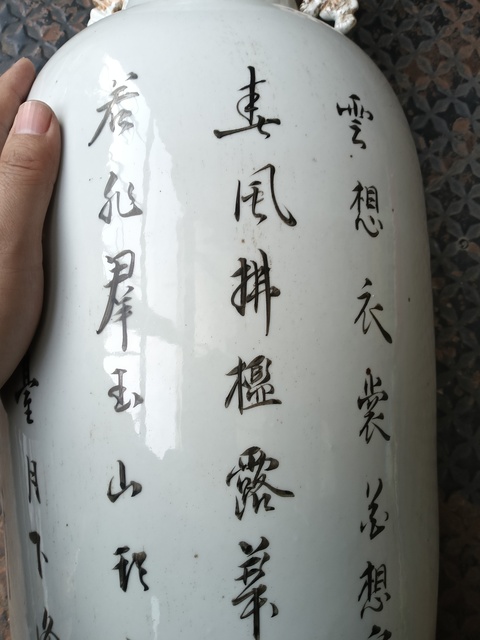 雲想衣裳花想
春風拂檻露華
若非羣玉山頭
臺月下逢